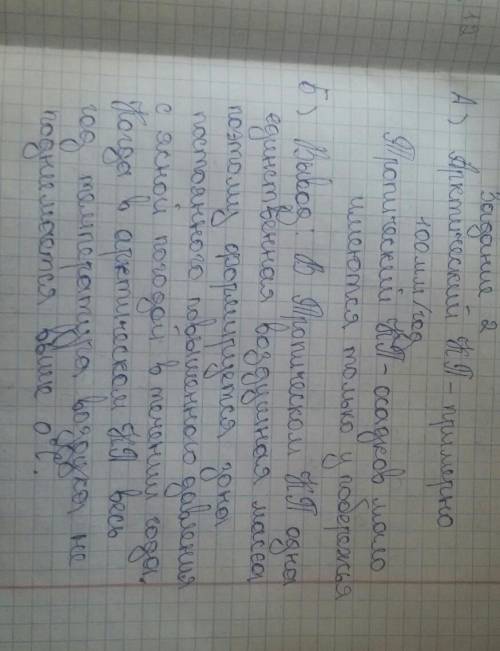 12
Задание 2
А) Арктический КП - примерно
100мм/год
Тропический КП - осадков мало
имеются только у побережья
Б) Вывод: В Тропическом КП одна
единственная воздушная масса
поэтому формируется зона
постоянного повышенного давления
с ясной погодой в течении года.
Когда в арктическом КП весь
год температура воздуха не
поднимается выше 0°C.